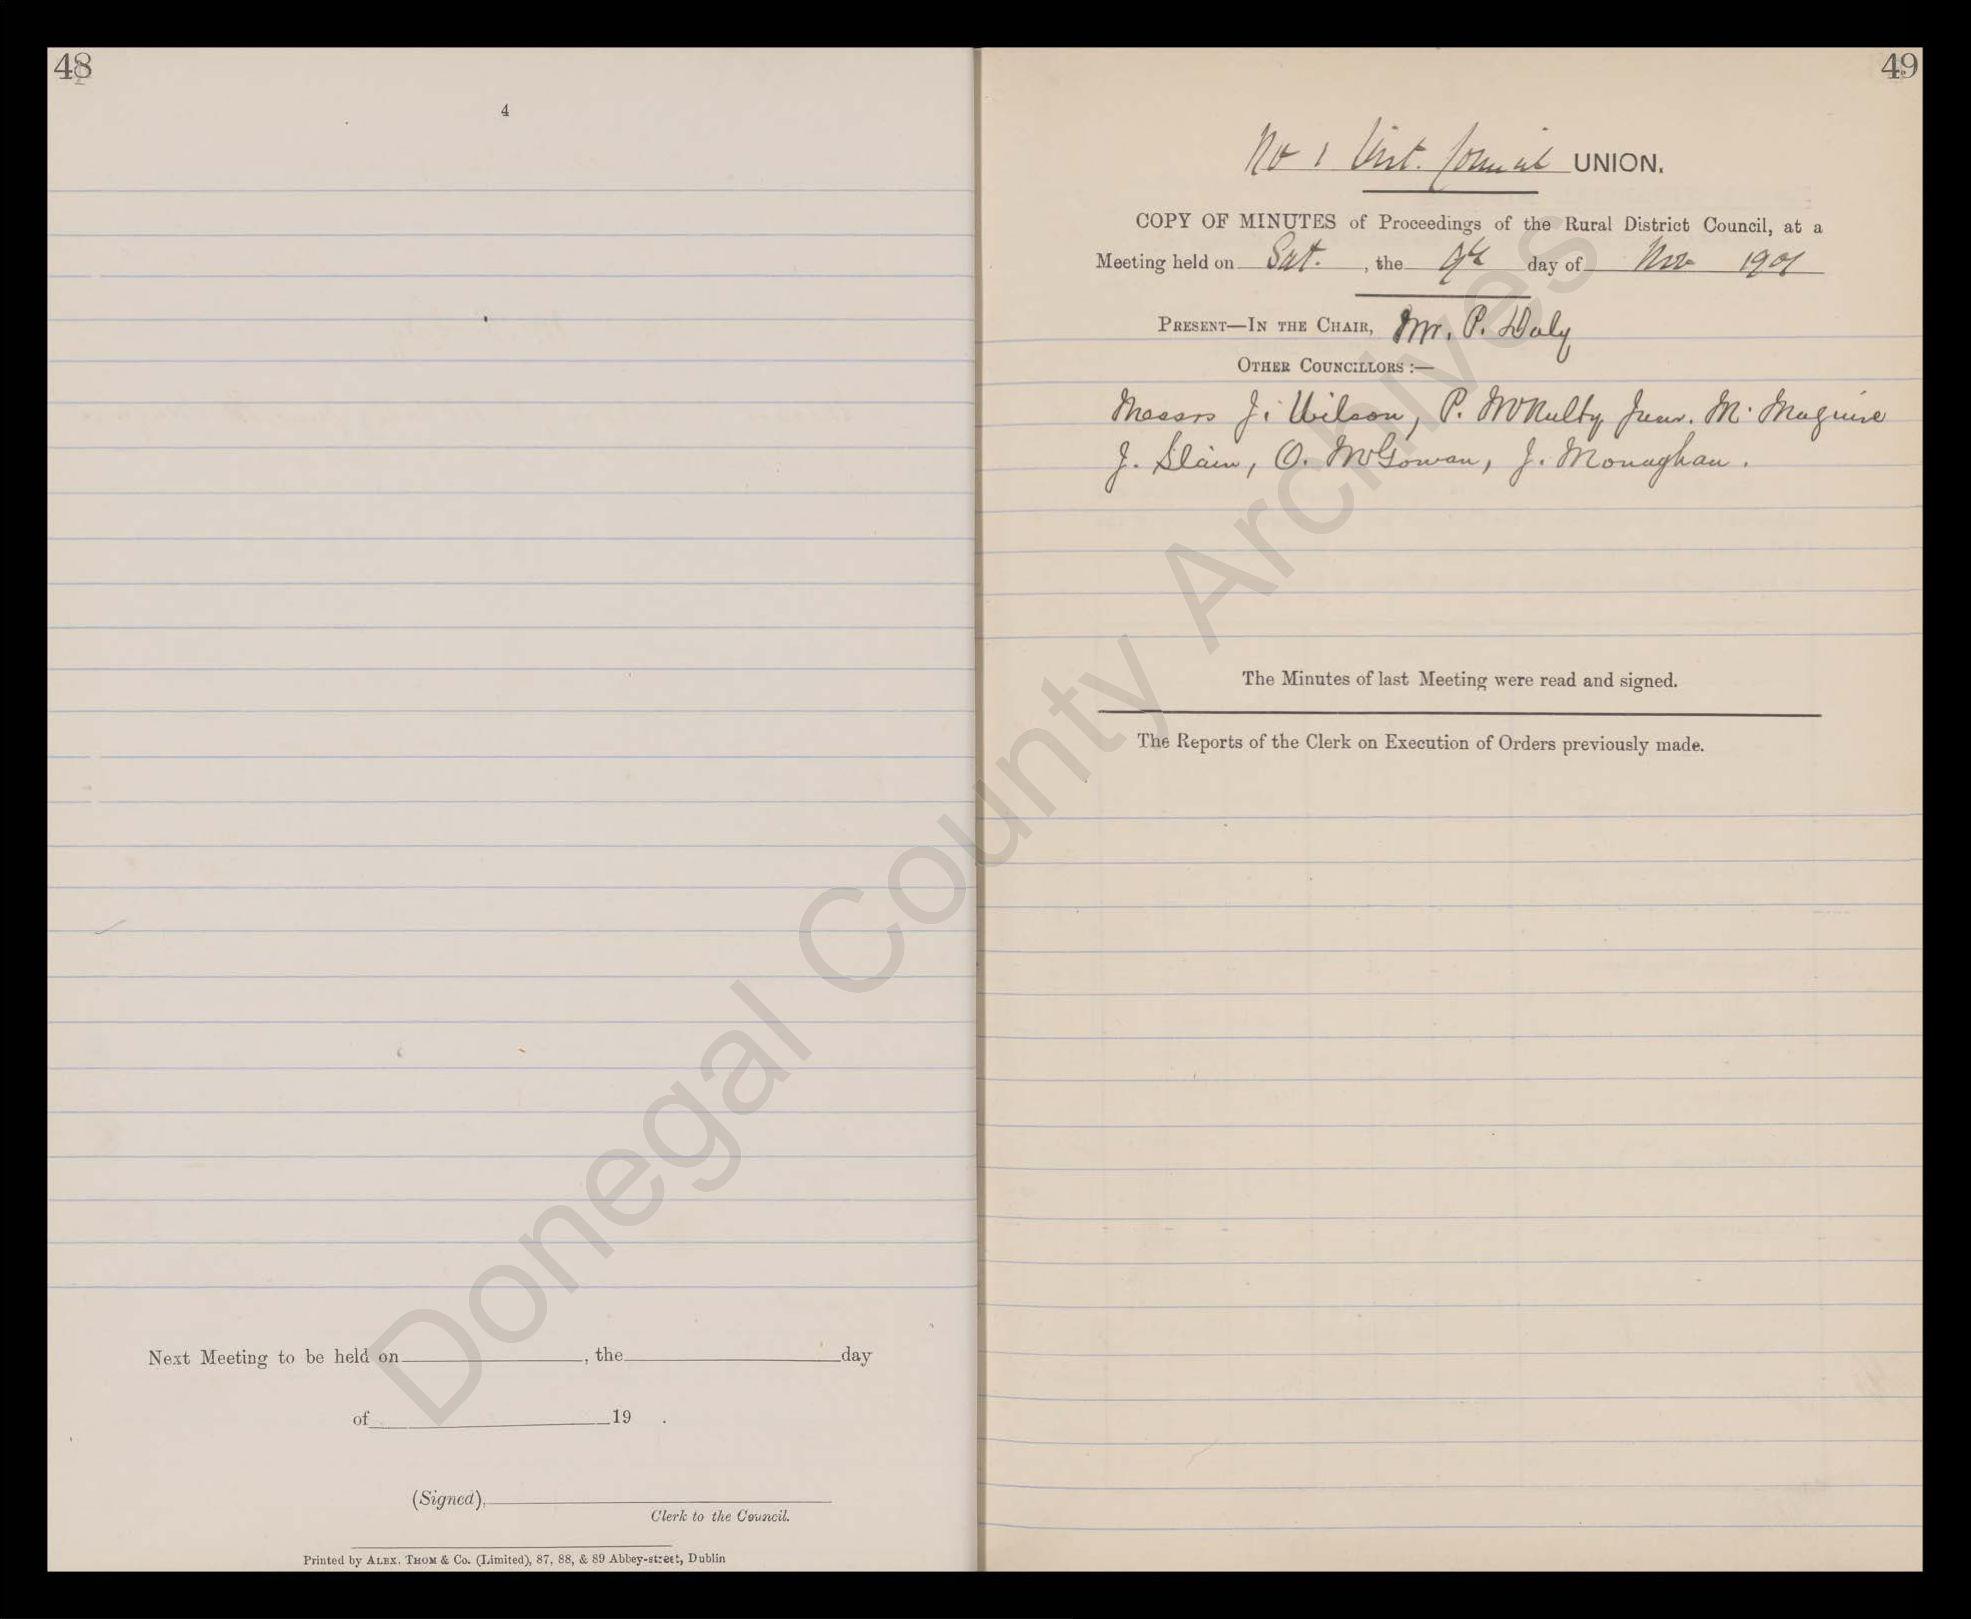 48
4
Next Meeting to be held on , the day
of 19 .
(Signed),
Clerk to the Council.
Printed by ALEX. THOM & Co. (Limited), 87, 88, & 89 Abbey-street, Dublin
49
No 1 Dist. Council UNION.
COPY OF MINUTES of Proceedings of the Rural District Council, at a
Meeting held on Sat. , the 9th day of Nov 1901
PRESENT—IN THE CHAIR, Mr. P. Daly
OTHER COUNCILLORS :—
Messrs J. Wilson, P. McNulty Junr. M. Maguire
J. Slain, O. McGowan, J. Monaghan.
The Minutes of last Meeting were read and signed.
The Reports of the Clerk on Execution of Orders previously made.
Donegal County Archives